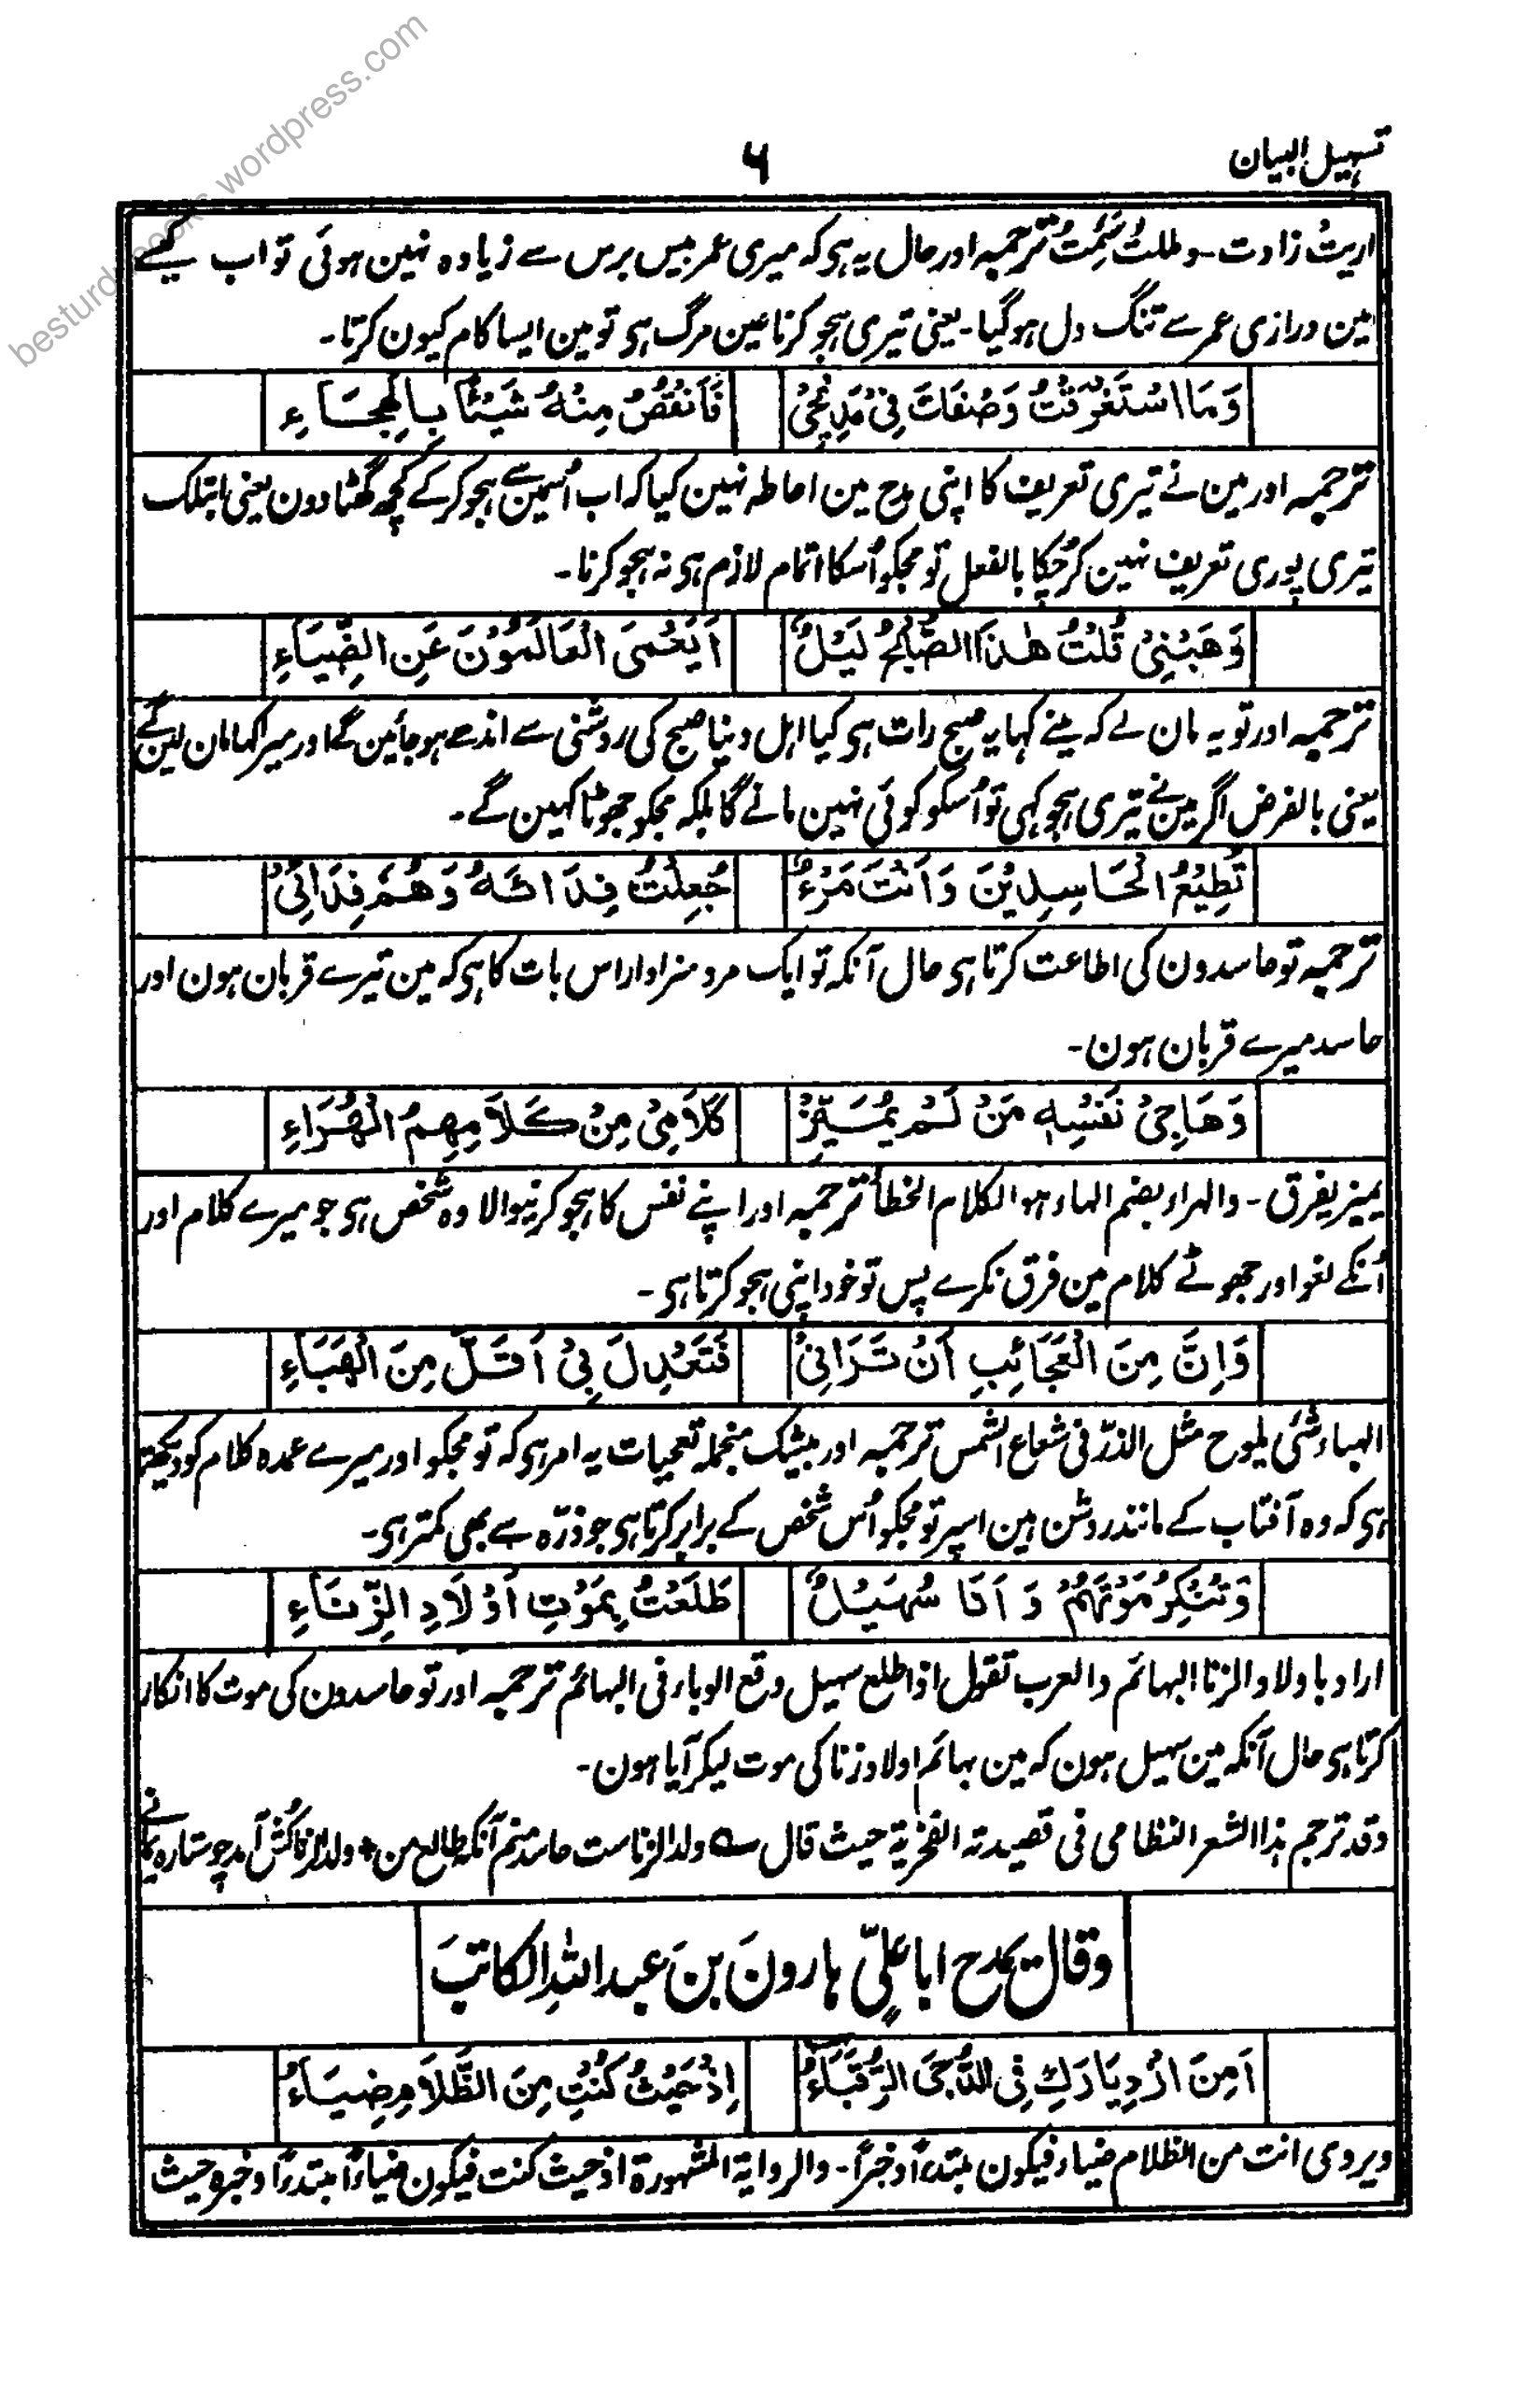 besturdubooks.wordpress.com
تسہیل البیان
۶
اربیتُ زادت۔ ومللتُ سَئِمتُ ترجمہ اور حال یہ ہی کہ میری عمر بیس برس سے زیادہ نہین ہوئی تو اب کیسے
مین درازی عمر سے تنگ دل ہوگیا۔ یعنی تیری ہجو کرنا عین مرگ ہی تو مین ایسا کام کیون کرتا۔
وَمَا اسْتَغْرَقْتُ وَصْفَكَ فِيْ مَدِيْحِيْ فَاَنْقُصَ مِنْهُ شَيْئًا بِالْهِجَاءِ
ترجمہ اور مین نے تیری تعریف کا اپنی مدح مین احاطہ نہین کیا کہ اب اُسمین سے ہجو کرکے کچھ گھٹا دون یعنی ابتلک
تیری پوری تعریف نہین کرچکا بالفعل تو مجکو اُسکا اتمام لازم ہی نہ ہجو کرنا۔
وَهَبْنِيْ قُلْتُ هٰذَا الصُّبْحُ لَيْلٌ اَيَعْمَى الْعَالَمُوْنَ عَنِ الضِّيَاءِ
ترجمہ اور تو یہ مان لے کہ مینے کہا یہ صبح رات ہی کیا اہل دنیا صبح کی روشنی سے اندھے ہوجاٸین گے اور میرا کہا مان لین گے
یعنی بالفرض اگر مینے تیری ہجو کہی تو اُسکو کوئی نہین مانے گا بلکہ مجکو جھوٹا کہین گے۔
تُطِيْعُ الْحَاسِدِيْنَ وَاَنْتَ مَرْءٌ جُعِلْتُ فِدَاءَهُ وَهُمْ فِدَائِيْ
ترجمہ تو حاسدون کی اطاعت کرتا ہی حال آنکہ تو ایک مرد سزاوار اس بات کا ہی کہ مین تیرے قربان ہون اور
حاسد میرے قربان ہون۔
وَهَاجِيْ نَفْسِهٖ مَنْ لَمْ يُمَيِّزْ كَلَامِيْ مِنْ كَلَامِهِمُ الْهُرَاءِ
یمیز یفرق۔ والہراء بضم الہاء ہو الکلام الخطأ ترجمہ اور اپنے نفس کا ہجو کرنیوالا وہ شخص ہی جو میرے کلام اور
اُنکے لغو اور جھوٹے کلام مین فرق نکرے پس تو خود اپنی ہجو کرتا ہی۔
وَاِنَّ مِنَ الْعَجَائِبِ اَنْ تَرَانِيْ فَتَعْدِلَ بِيْ اَقَلَّ مِنَ الْهَبَاءِ
الہباء شئی یلوح مثل الذرّ فی شعاع الشمس ترجمہ اور بیشک منجملہ تعجبات یہ امر ہی کہ تو مجکو اور میرے عمدہ کلام کو دیکھتا
ہی کہ وہ آفتاب کے مانند روشن ہین اسپر تو مجکو اُس شخص کے برابر کرتا ہی جو ذرّہ سے بھی کمتر ہی۔
وَتُنْكِرُ مَوْتَهُمْ وَاَنَا سُهَيْلٌ طَلَعْتُ بِمَوْتِ اَوْلَادِ الزِّنَاءِ
اراد باولاد الزنا البہائم والعرب تقول اذا طلع سہیل وقع الوباء فی البہائم ترجمہ اور تو حاسدون کی موت کا انکار
کرتا ہی حال آنکہ مین سہیل ہون کہ مین بہائم اولاد زنا کی موت لیکر آیا ہون۔
وقد ترجم ہذا الشعر النظامی فی قصیدتہ الفخریۃ حیث قال ے ولد الزناست حاسد منم آنکہ طالع من ٭ ولد الزنا کش آمد چو ستارہ یمانے
وقال یمدح ابا علیٍّ ہارونَ بنَ عبد اللہِ الکاتبَ
اَمِنَ ازْدِيَارَكِ فِي الدُّجَى الرُّقَبَاءُ اِذْ حَيْثُ كُنْتِ مِنَ الظَّلَامِ ضِيَاءُ
ویروی انت من الظلام ضیاء فیکون مبتدءًا وخبرًا۔ والروایۃ المشہورۃ اذ حیث کنت فیکون ضیاءً مبتدءًا وخبرہ حیث